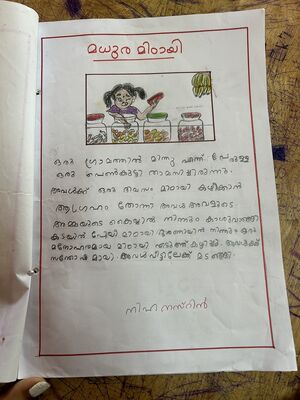 മധുര മിഠായി
ഒരു ഗ്രാമത്തിൽ മിന്നു എന്ന് പേരുള്ള
ഒരു പെൺകുട്ടി താമസിച്ചിരുന്നു.
അവൾക്ക് ഒരു ദിവസം മിഠായി കഴിക്കാൻ
ആഗ്രഹം തോന്നി അവൾ അവളുടെ
അമ്മയുടെ കൈയ്യിൽ നിന്നും കാശുവാങ്ങി
കടയിൽ പോയി മിഠായി ഭരണിയിൽ നിന്നും ഒരു
മനോഹരമായ മിഠായി എടുത്ത് കഴിച്ചു. അവൾക്ക്
സന്തോഷമായി. അവൾ വീട്ടിലേക്ക് മടങ്ങി.
നിഹ നസ്റിൻ